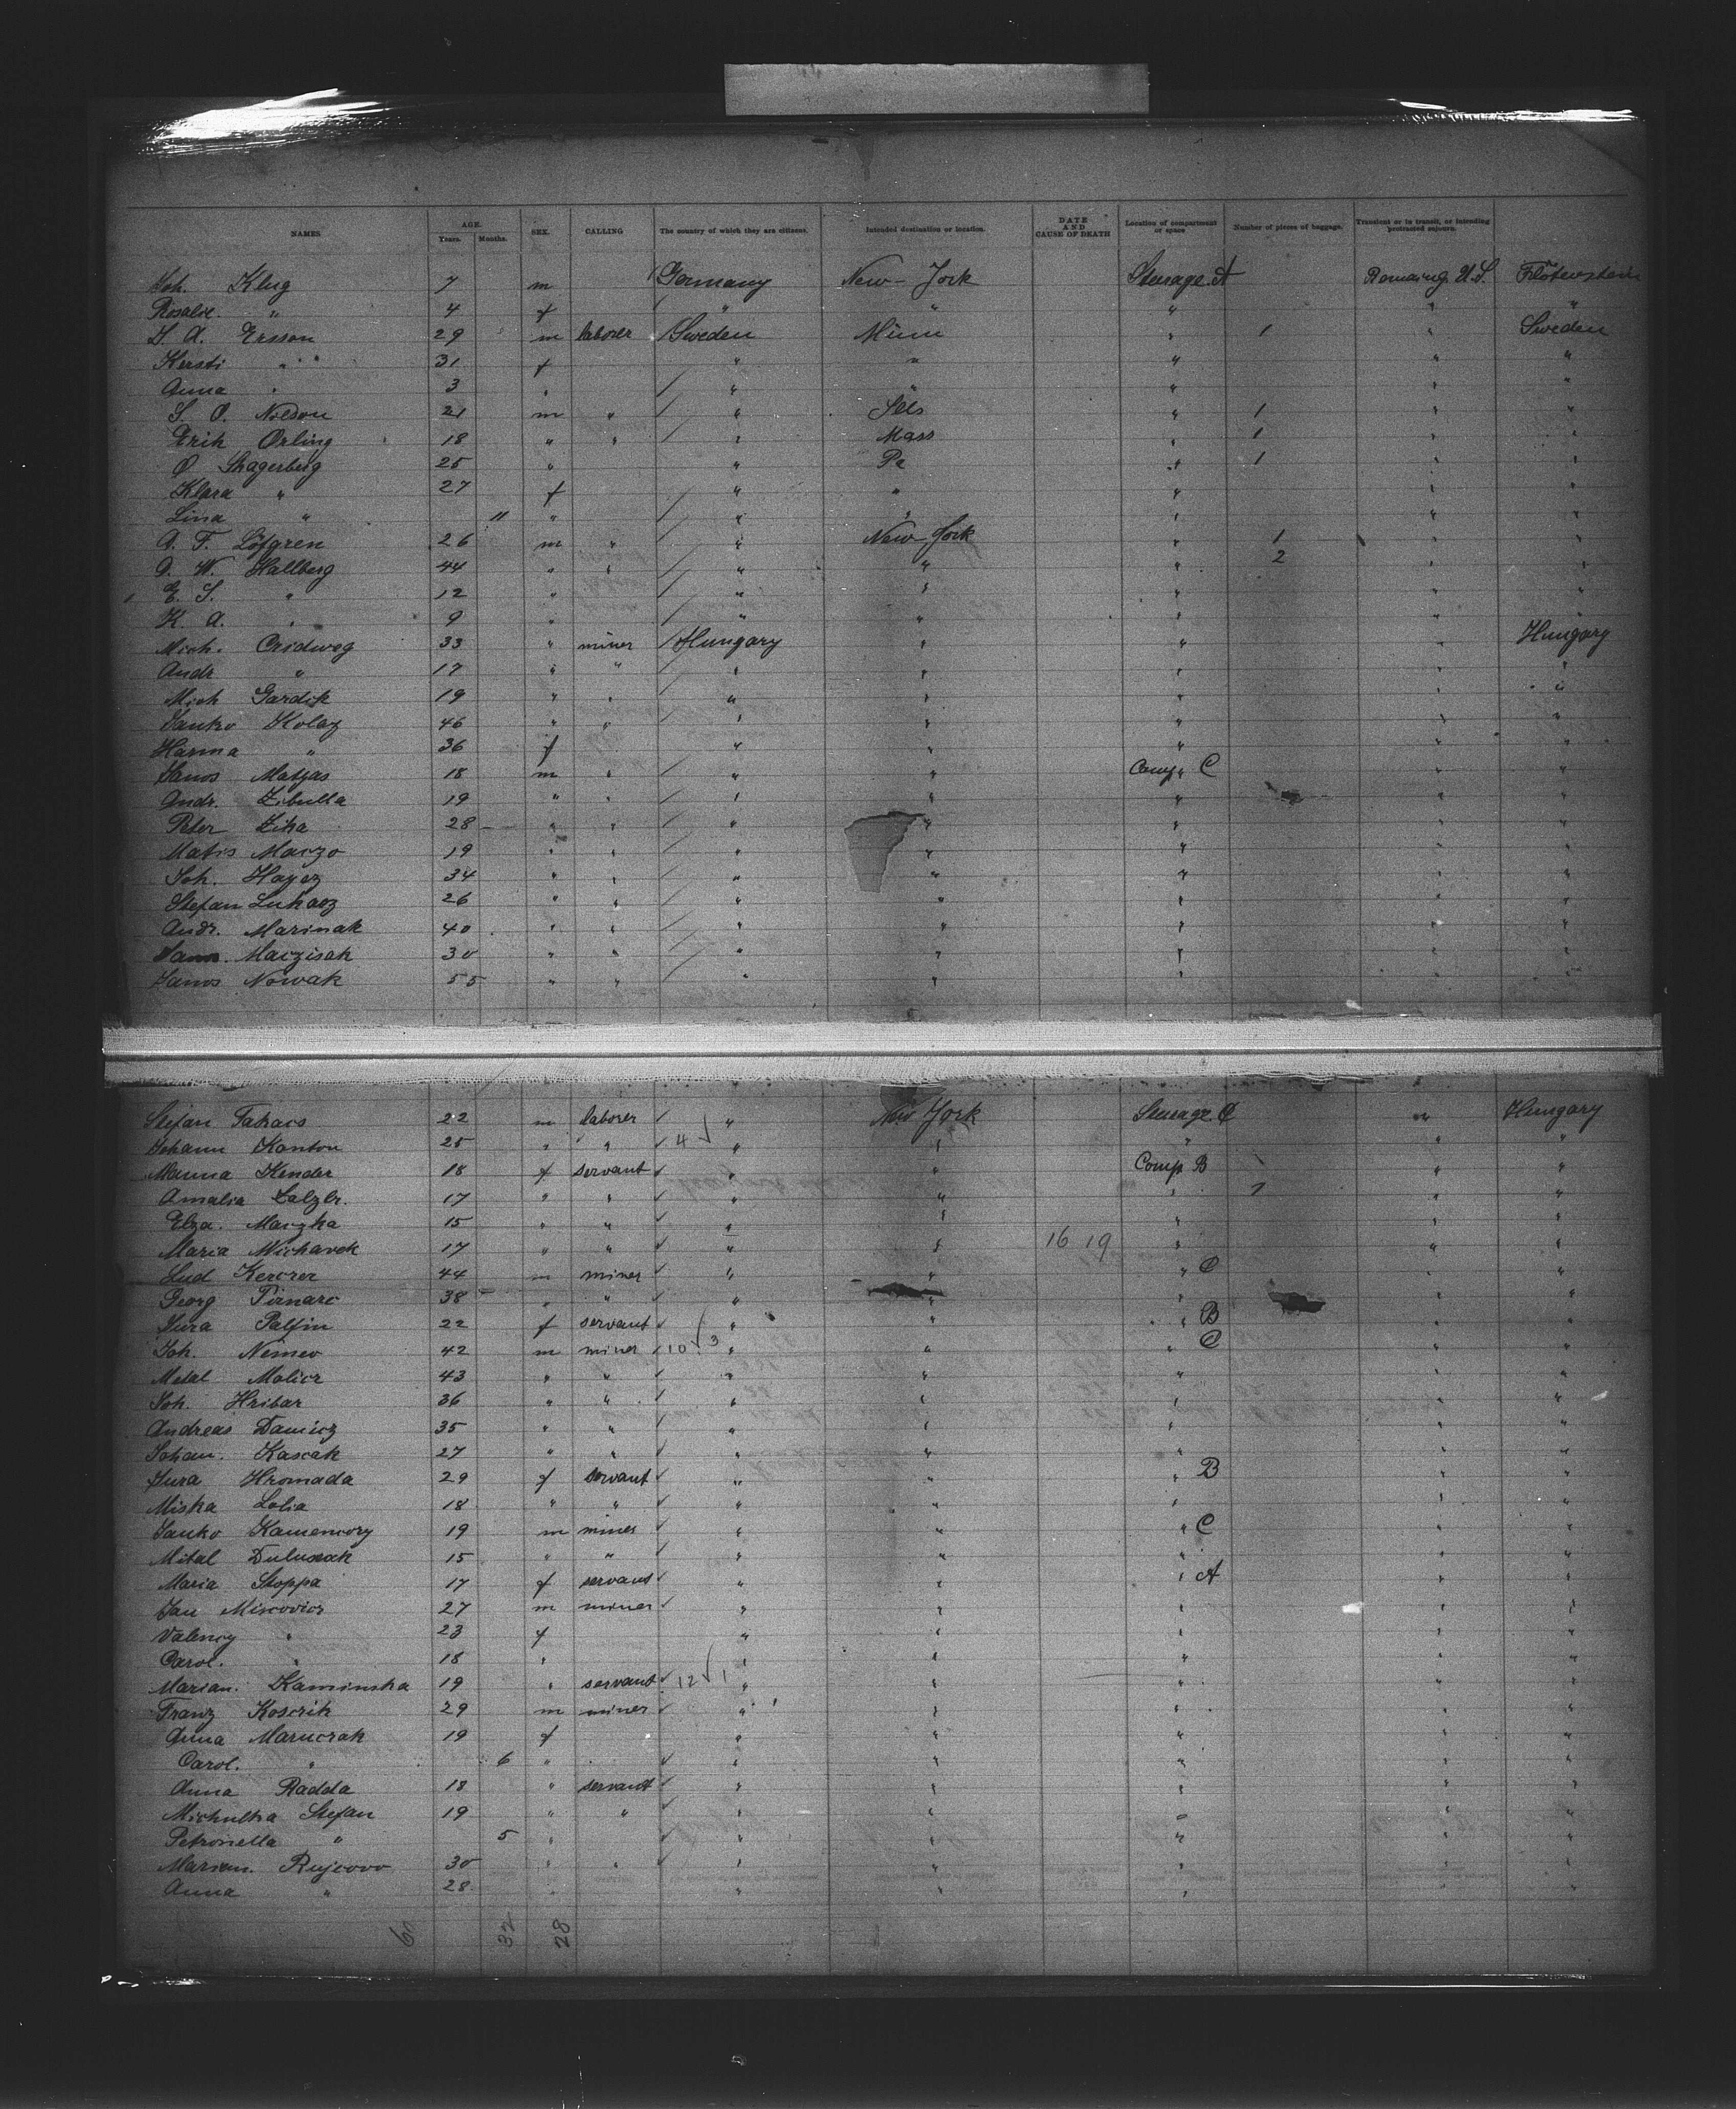 NAMES AGE. Years. Months. SEX. CALLING The country of which they are citizens. Intended destination or location. DATE AND CAUSE OF DEATH Location of compartment or space Number of pieces of baggage. Transient or in transit, or intending protracted sojourn.
Joh. Klug 7 m Germany New-York Steerage A Remaing U.S.
Rosalie " 4 f " " " "
J. A. Ersson 29 m laborer Sweden Minn " 1 " Sweden
Kersti " 31 f " " " " "
Anna " 3 " " " " " "
S. O. Nilsson 21 m " " " 1 " "
Erik Orling 18 " " " Mass " 1 " "
O. Skagerberg 25 " " Pa " 1 " "
Klara " 27 f " " " " "
Lina " 11 " " " " " "
A. F. Löfgren 26 m " " New-York " 1 " "
A. W. Hallberg 44 " " " " " 2 " "
E. S. " 12 " " " " " "
K. A. " 9 " " " " " "
Mich. Cridweg 33 " miner Hungary " " " Hungary
Andr " 17 " " " " " " "
Mich Gardik 19 " " " " " " "
Janko Kolaz 46 " " " " " " "
Hanna " 36 f " " " " "
Janos Matyas 18 m " " " Comp. C " "
Andr. Zibulla 19 " " " " " " "
Peter Ziha 28 " " " " " " "
Matis Maczo 19 " " " " " " "
Joh. Hayez 34 " " " " " " "
Stefan Lukacz 26 " " " " " "
Andr. Marinak 40 " " " " " " "
Janos Maczisak 30 " " " " " " "
Janos Nowak 55 " " " " "
Stefan Takacs 22 m laborer " New York Steerage C " Hungary
Johann Kanton 25 " " 4 " " " " "
Manna Kender 18 f servant " " Comp B " "
Amalia 17 " " " " " 1 " "
Elza. Maczka 15 " " " " " " "
Maria Michavek 17 " " " " 16 19 " " "
Lud Kerczer 44 m miner " " " C " "
Georg Pirnarc 38 " " " " " " "
Jura Palfin 22 f servant " " " B " "
Joh. Nemev 42 m miner 10 3 " " " C " "
Molicz 43 " " " " " " "
Joh. Hribar 36 " " " " " " "
Andreas Danicz 35 " " " " " " "
Johan. Kascak 27 " " " " " " "
Jura Hromada 29 f servant " " " B " "
Miska Lolia 18 " " " " " " "
Janko Kamenczy 19 m miner " " " C " "
Mihal 15 " " " " " " "
Maria Stoppa 17 f servant " " " A " "
Jan Miscovicz 27 m miner " " " " "
Valency " 23 f " " " " "
Carol. " 18 " " " " " "
Marian. Kaminska 19 " servant 12 1 " " " " "
Franz Koscrik 29 m miner " " " " "
Anna Maruczak 19 f " " " " "
Carol. " 6 " " " " " "
Anna Radda 18 " servant " " " " "
Michulka Stefan 19 " " " " " " "
Petronella " 5 " " " " " "
Marian. Rujcovo 30 " " " " " " "
Anna " 28 " " " " " "
32 28